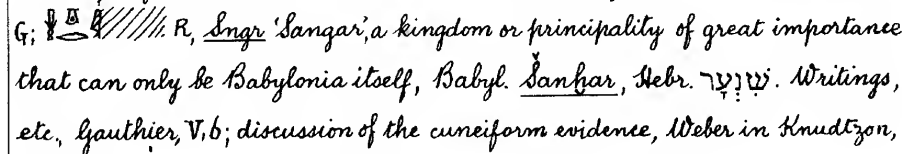 G; R, Sngr 'Sangar', a kingdom or principality of great importance
that can only be Babylonia itself, Babyl. Šanḫar, Hebr. שִׁנְעָר. Writings,
etc., Gauthier, V, 6; discussion of the cuneiform evidence, Weber in Knudtzon,